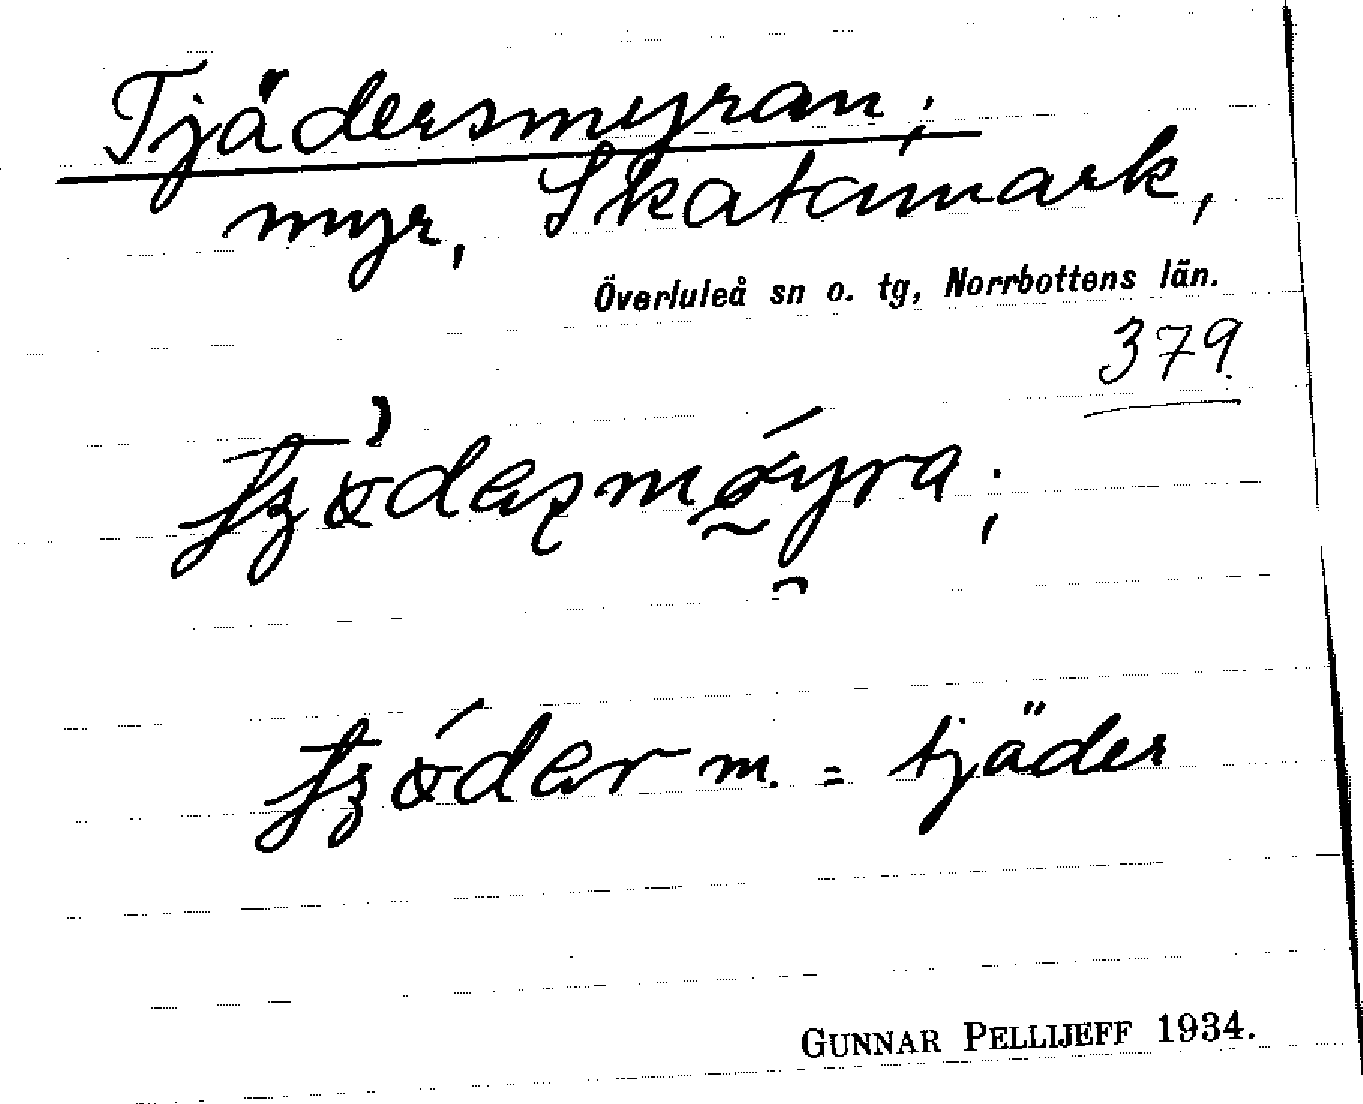 Tjädersmyran;
myr, Skatamark,
Överluleå sn o. tg, Norrbottens län.
379
m. = tjäder
GUNNAR PELLIJEFF 1934.